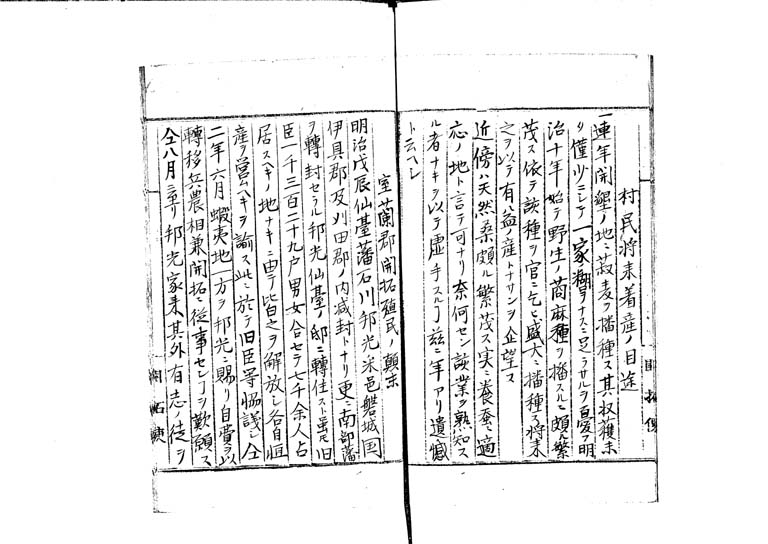 村民将来着産ノ目途
一連年開墾ノ地ニ菽麦ヲ播種ス其収獲未
タ僅少ニシテ一家糊ヲナスニ足ラサルヲ憂フ明
治十年始テ野生ノ苘麻種ヲ播スルニ頗ル繁
茂ス依テ該種ヲ官ニ乞ヒ盛大ニ播種ス将来
之ヲ以テ有益産トナサンヲ企望ス
近傍ハ天然桑頗ル繁茂ス実ニ養蚕ニ適
応ノ地ト言テ可ナリ奈何セン該業ヲ熟知ス
ル者ナキヲ以テ虚手スルヿ茲ニ年アリ遺憾
ト云ヘシ
室蘭郡開拓殖民ノ顛末
明治戊辰仙臺藩石川邦光采邑磐城国
伊具郡及刈田郡ノ内減封トナリ更ニ南部藩
ヲ轉封セラル邦光仙臺ノ邸ニ轉住スト雖モ旧
臣一千三百二十九戸男女合セテ七千余人占
居スヘキノ地ナキニ由テ皆之ヲ解放シ各自恒
産ヲ営ムヘキヲ諭ス此ニ於テ旧臣等協議シ仝
二年六月蝦夷地一方ヲ邦光ニ賜リ自費ヲ以
轉移兵農相兼開拓ニ従事センヿヲ歎願ス
仝八月ニ至リ邦光家来其外有志ノ徒ヲ
開拓使
開拓使